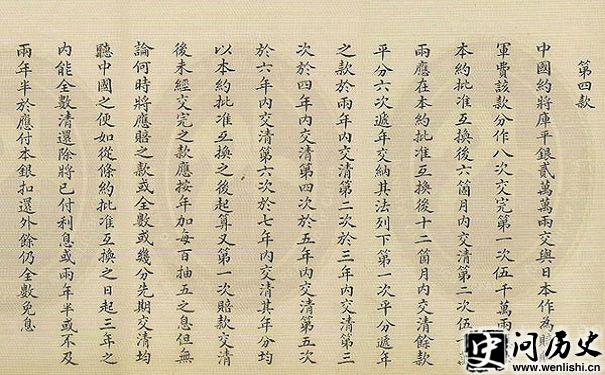 第四款
中國約將庫平銀貳萬萬兩交與日本作為賠
軍費該款分作八次交完第一次伍千萬兩
本約批准互換後六箇月內交清第二次伍
兩應在本約批准互換後十二箇月內交清餘款
平分六次遞年交納其法列下第一次平分遞年
之款於兩年內交清第二次於三年內交清第三
次於四年內交清第四次於五年內交清第五次
於六年內交清第六次於七年內交清其年分均
以本約批准互換之後起算又第一次賠款交清
後未經交完之款應按年加每百抽五之息但無
論何時將應賠之款或全數或幾分先期交清均
聽中國之便如從條約批准互換之日起三年之
內能全數清還除將已付利息或兩年半或不及
兩年半於應付本銀扣還外餘仍全數免息
问历史
www.wenlishi.cn